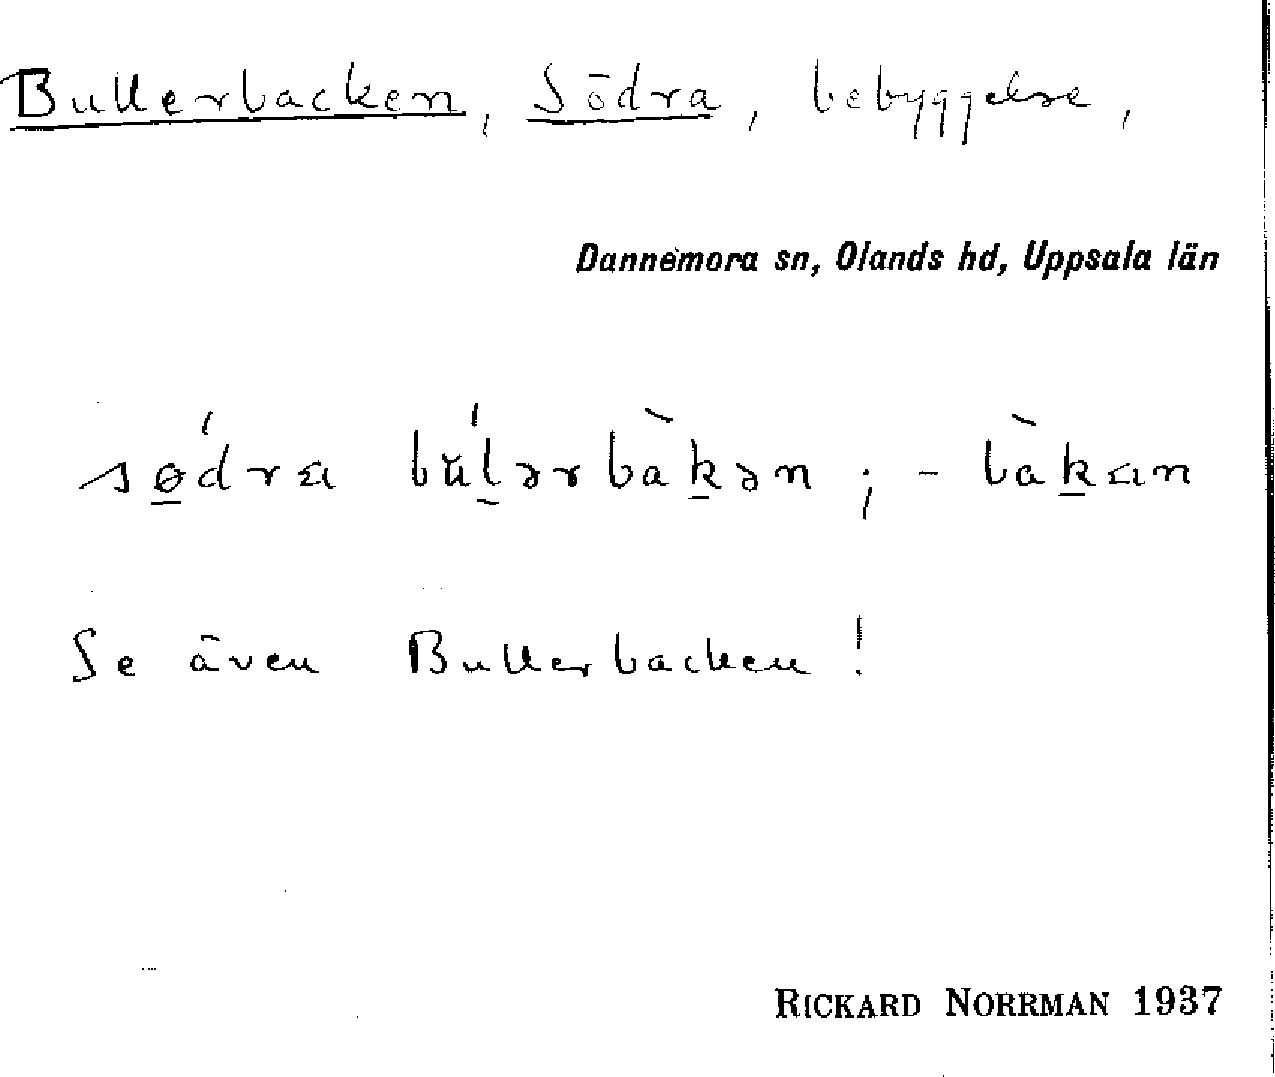 Bullerbacken, Södra, bebyggelse,
Dannemora sn, Olands hd, Uppsala län
sǿ̲dra bŭ́l̲ərbàk̲ən; -bàk̲an
Se även Bullerbacken!
RICKARD NORRMAN 1937